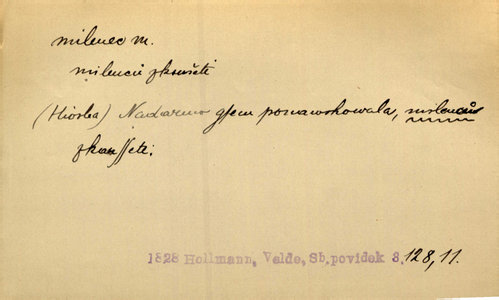 milenec m.
milenců zkoušeti
(Hiorba) Nadarmo gsem poznawkowala, milenců
zkausseti.
1828 Hollmann, Velde, Sb.povídek 3, 128, 11.